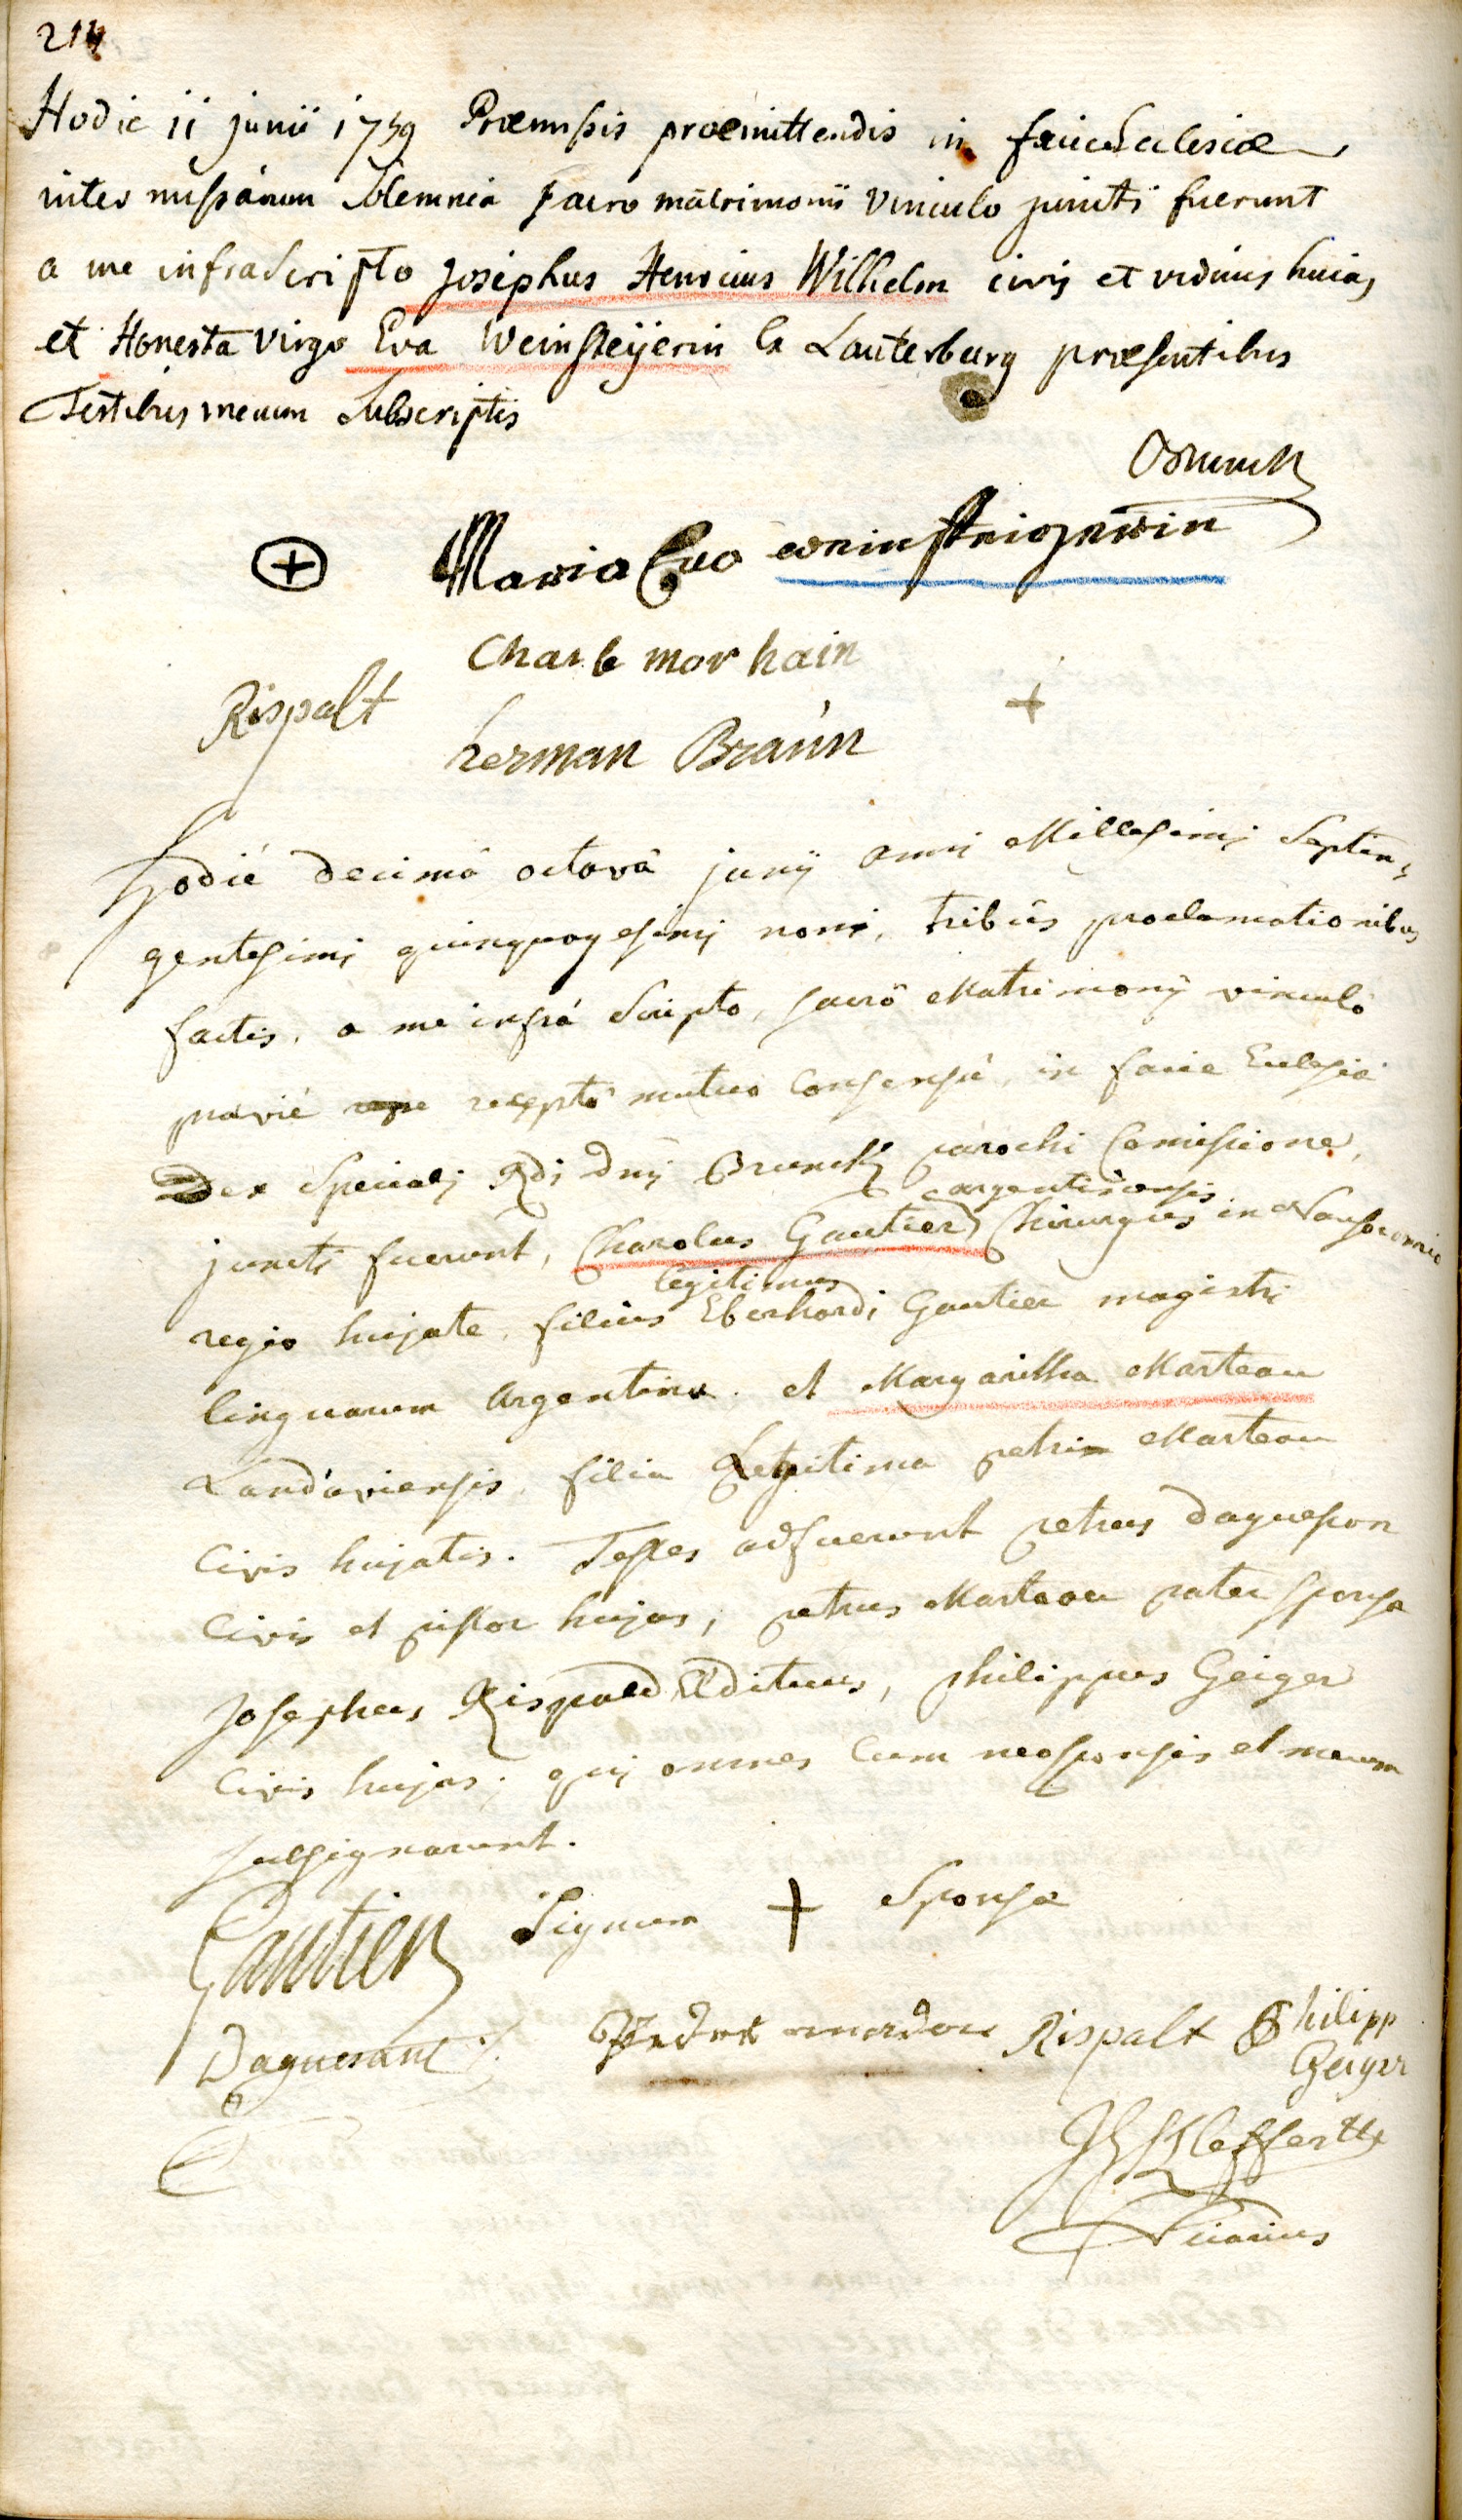 214
Hodie 11 junii 1759 Præmissis præmittendis in facie Ecclesiæ
inter missarum Solemnia sacro matrimonii vinculo juncti fuerunt
a me infra Scripto Josephus Henricus Wilhelm civis et viduus huias
et Honesta virgo Eva Weinsteijerin ex Lauterburg præsentibus
Testibus mecum Subscriptis
Brunck
+ Maria Eva
Charle mor hain
Rispalt +
herman Braun
Hodié decimâ octavâ junij anni Millesimi Septin,
gentesimi quinquagesimi noni, tribûs proclamationibus
factis, a me infrá Scripto, sacrô Matrimonij vinculô
prævié receptô mutuo Consensû, in facie Eclesiæ
ex Speciali Rdi dnj Brunck parochi Comissione,
argentinensis
juncti fuerunt, Charolus Gautier Chirurgus in Nosocomio
legitimus
regio hujate, filius Eberhardi Gautier magistri
linguarum Argentinæ. et Margaritha Marteau
Landaviensis, filia Legitima petri Marteau
Civis hujatis. Testes adfuerunt petrus daguesson
Civis et pistor hujas, petrus Marteau pater sponsæ
Josephus Rispald Ædituus, philippus Geiger
Civis hujas; qui omnes Cum neosponsis et mecum
subsignarunt.
Gautier Signum + Sponsæ
Daguesant mardou Rispalt Philipp
Geiger
Klefferth
Vicarius